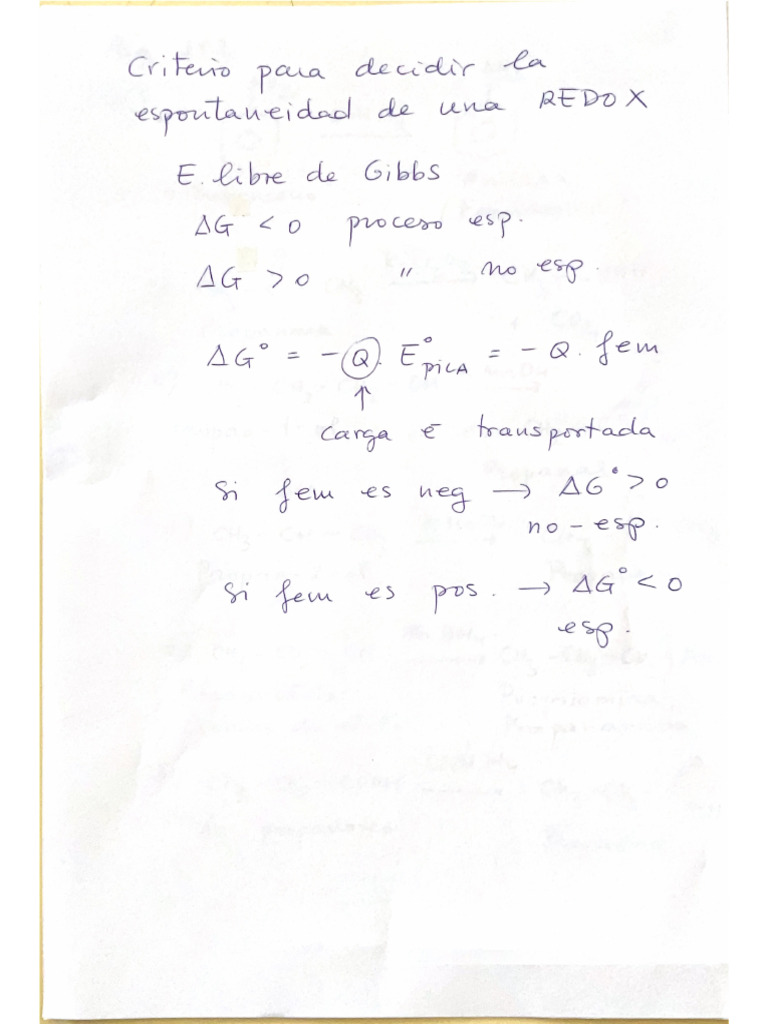 Criterio para decidir la
espontaneidad de una REDOX
E. libre de Gibbs
ΔG < 0 proceso esp.
ΔG > 0 " no esp.
ΔG° = - Q. E°PILA = - Q. fem
↑
carga e transportada
Si fem es neg → ΔG° > 0
no-esp.
Si fem es pos. → ΔG° < 0
esp.